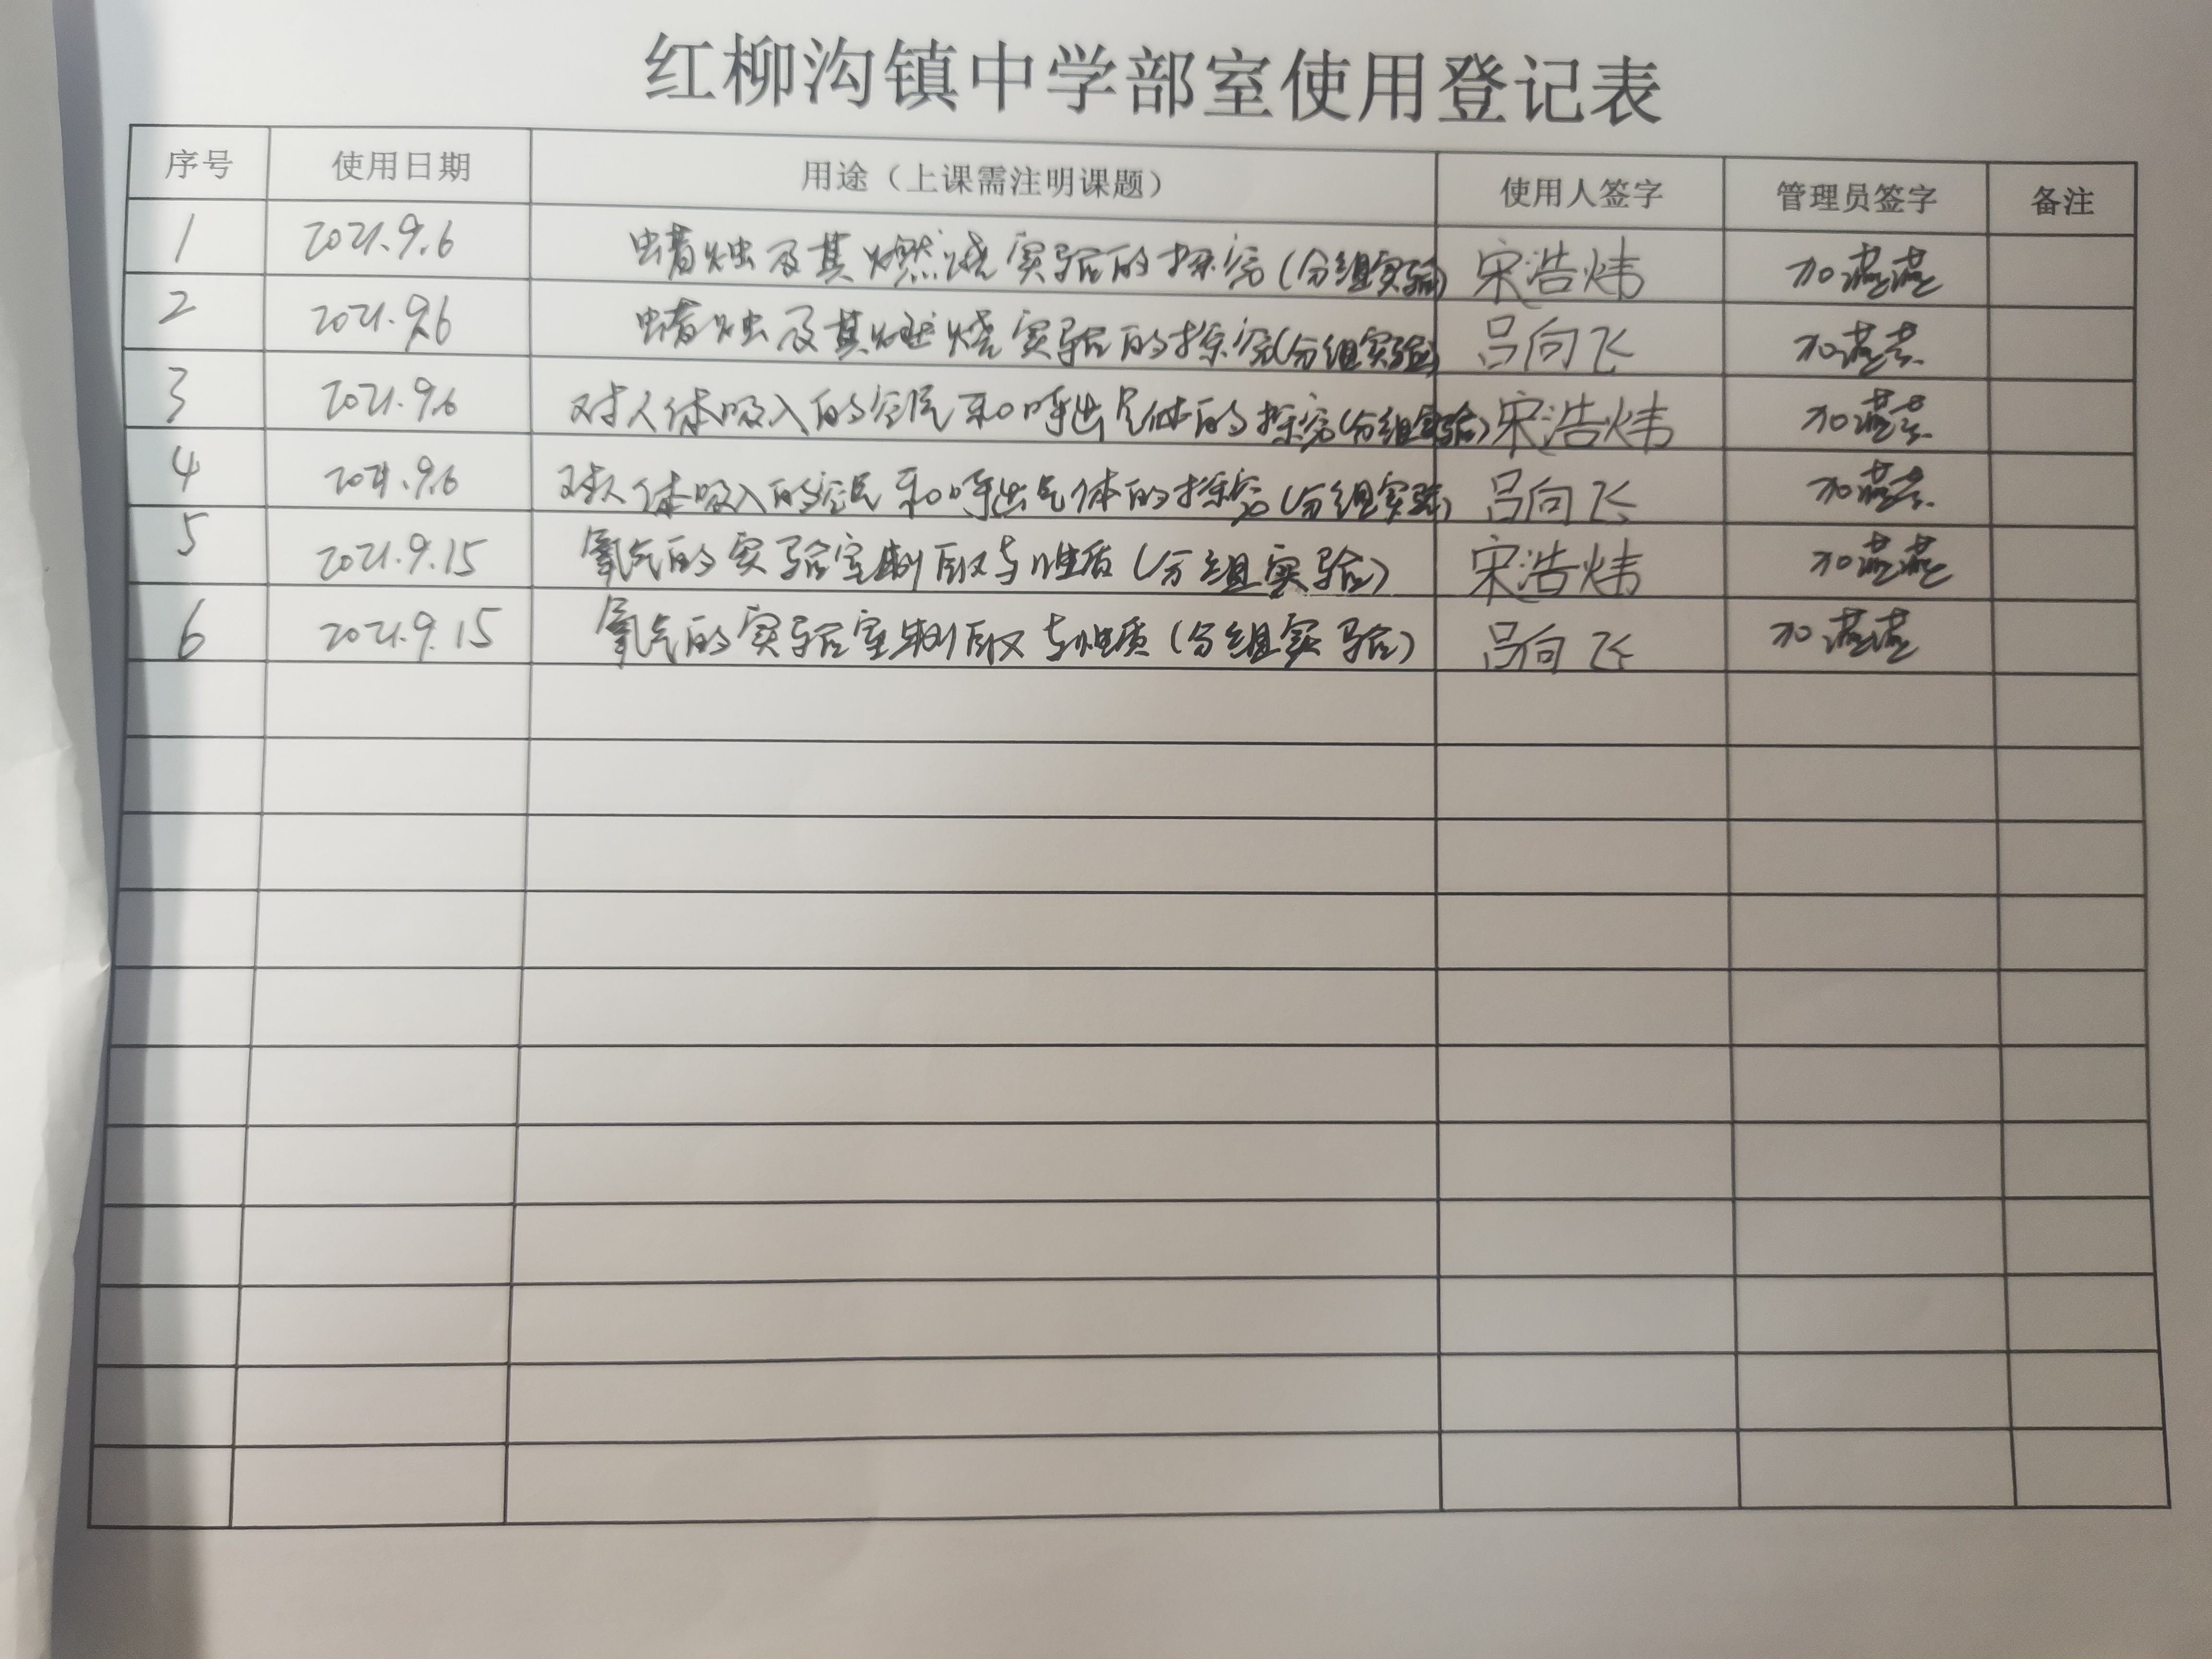 红柳沟镇中学部室使用登记表
序号 使用日期 用途（上课需注明课题） 使用人签字 管理员签字 备注
1 2021.9.6 蜡烛及其燃烧实验的探究(分组实验) 宋浩炜 加燕燕
2 2021.9.6 蜡烛及其燃烧实验的探究(分组实验) 吕向飞 加燕燕
3 2021.9.6 对人体吸入的空气和呼出气体的探究(分组实验) 宋浩炜 加燕燕
4 2021.9.6 对人体吸入的空气和呼出气体的探究(分组实验) 吕向飞 加燕燕
5 2021.9.15 氧气的实验室制取与性质(分组实验) 宋浩炜 加燕燕
6 2021.9.15 氧气的实验室制取与性质(分组实验) 吕向飞 加燕燕